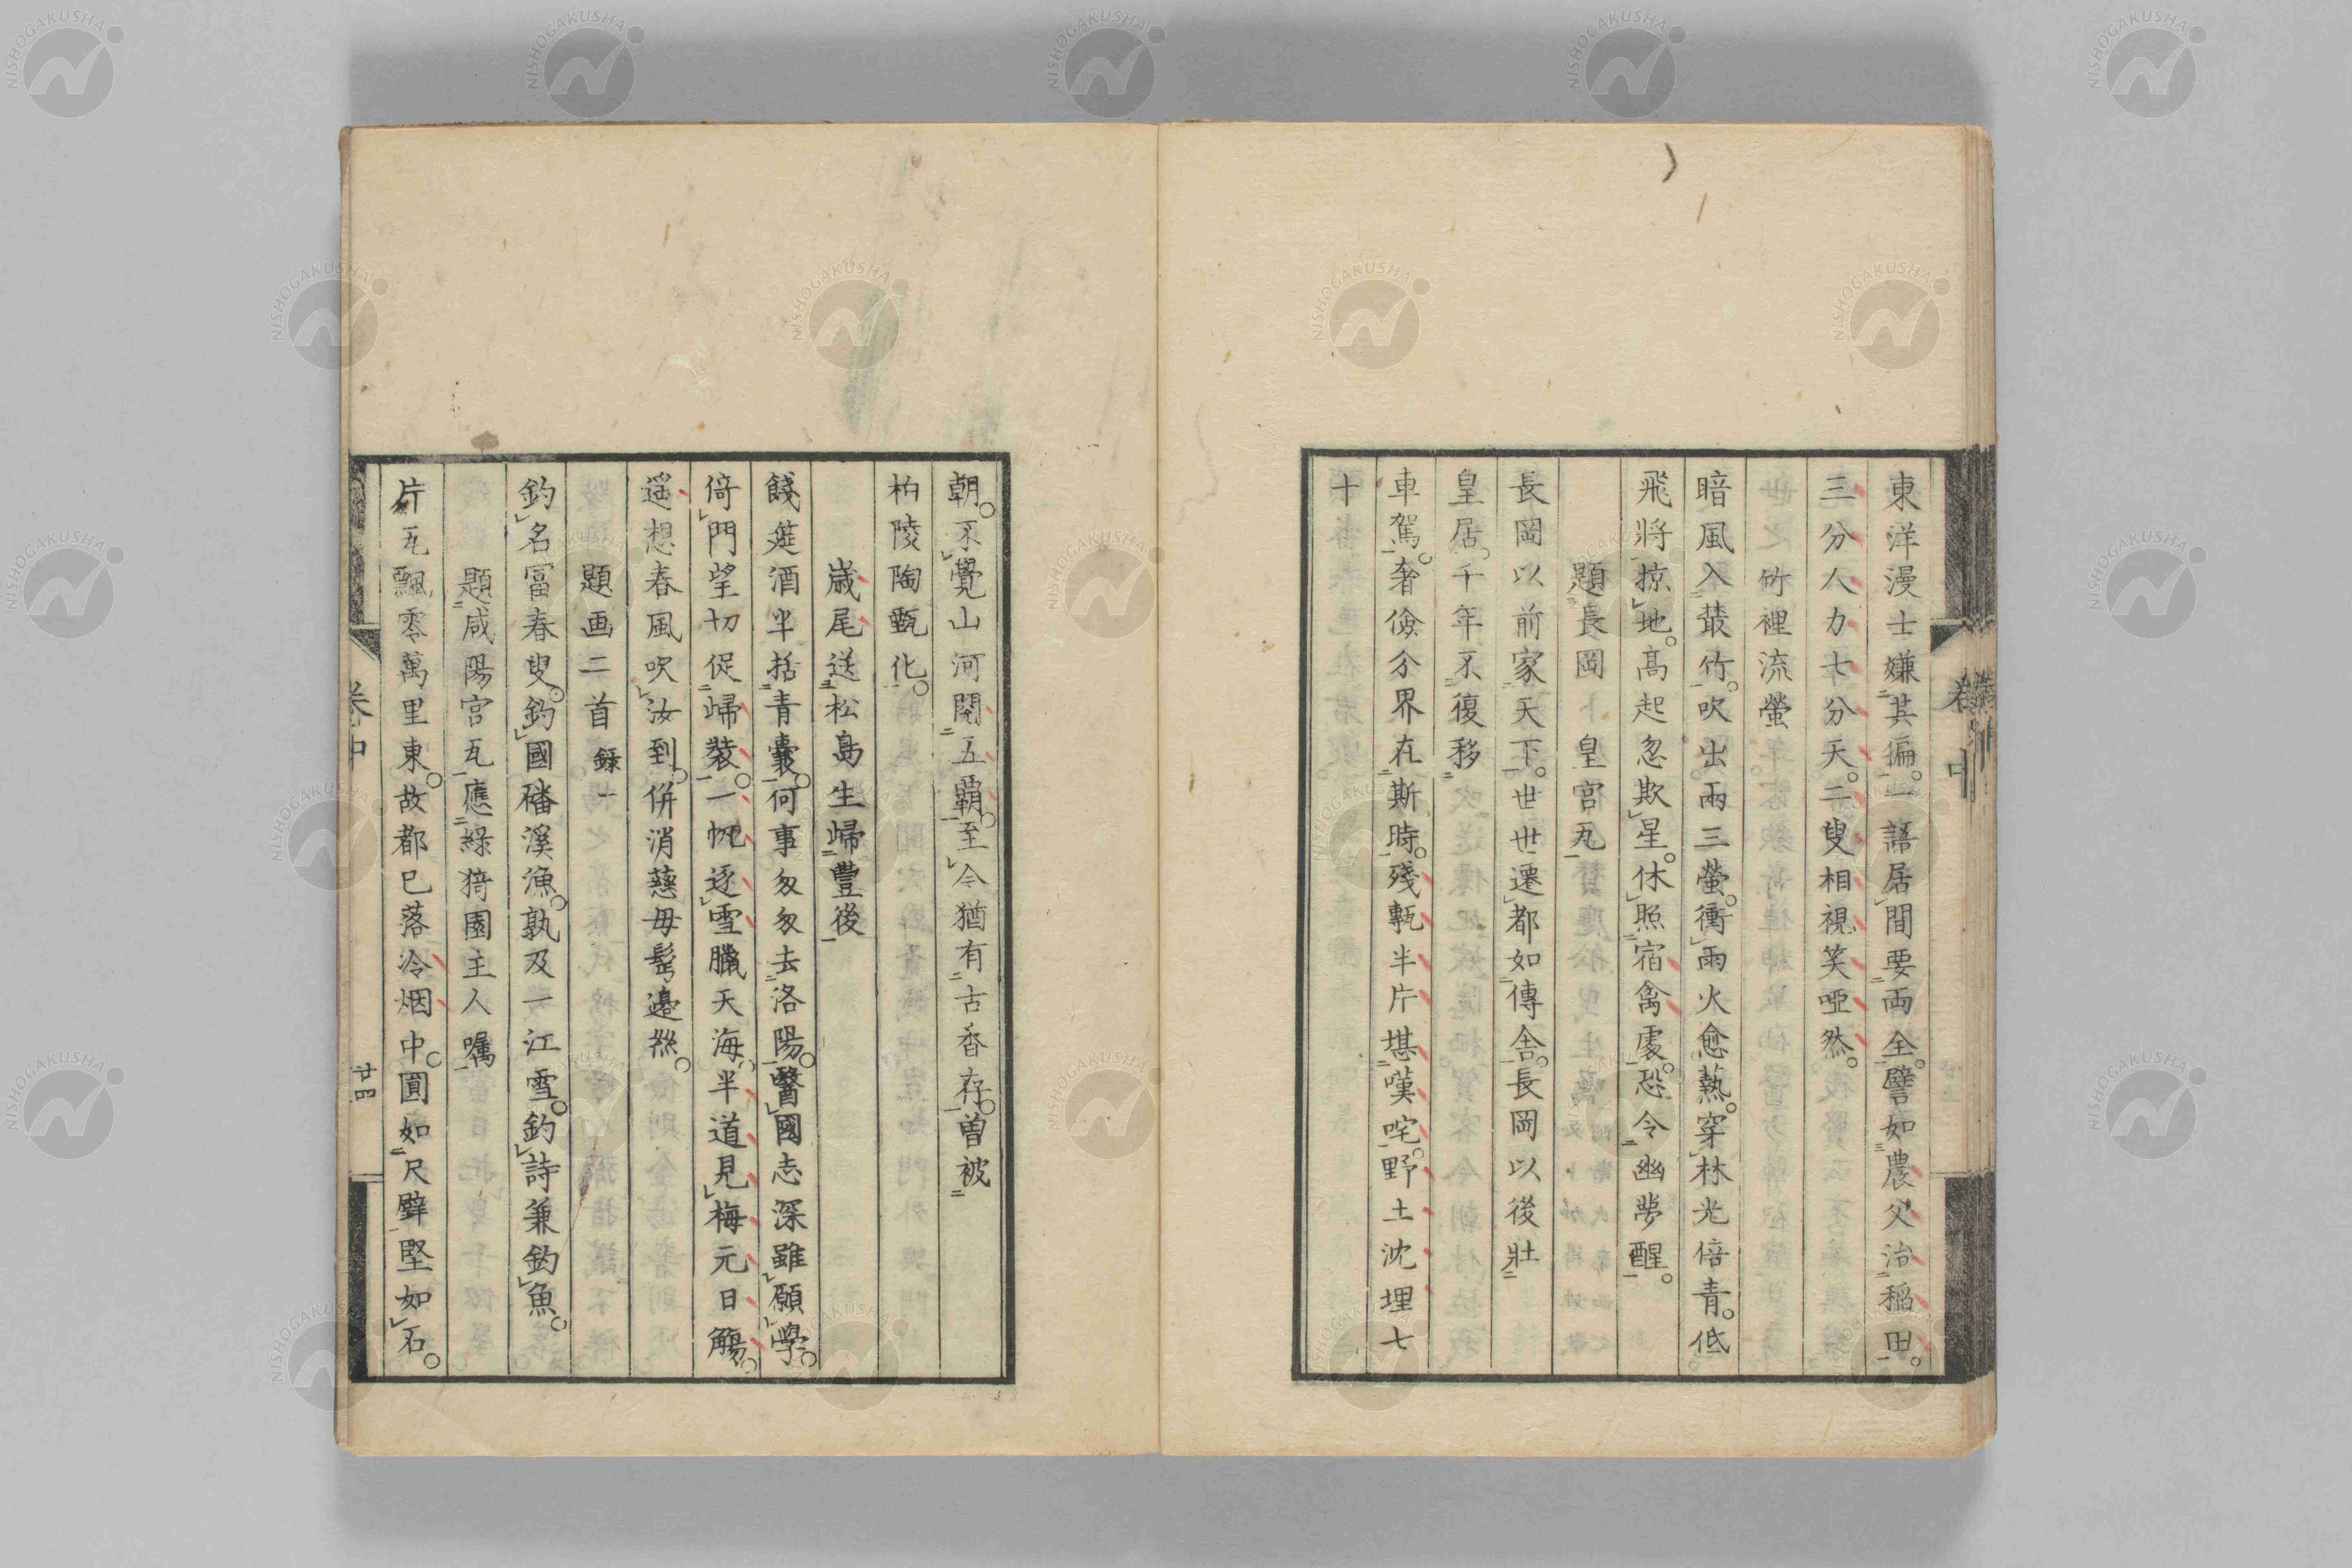 東洋漫士嫌其偏。一語居間要両全。譬如農父治稲田。
三分人力七分天。二叟相視笑啞然。
竹裡流螢
暗風入叢竹。吹出兩三螢。衝雨火愈熱。穿林光倍青。低
飛將掠地。高起忽欺星。休照宿禽處。恐令幽夢醒。
題長岡皇宮瓦
長岡以前家天下。世世遷都如傳舎。長岡以後壯
皇居。千年不復移
車駕。奢儉分界在斯時。殘甎半片堪嘆咤。野土沈埋七
十
朝。不覺山河閱五覇。至今猶有古香存。曽被
柏陵陶甄化。
歳尾送松島生歸豊後
餞筵酒半括青嚢。何事匆匆去洛陽。醫國志深雖願學。
倚門望切促歸装。一帆逐雪臘天海。半道見梅元日觴。
遥想春風吹汝到。併消慈母髩邊絲。
題画二首 録一
釣名富春叟。釣國磻溪漁。孰及一江雪。釣詩兼釣魚。
題咸陽宮瓦應緑猗園主人囑
片瓦飄零萬里東。故都已落冷烟中。圓如尺璧堅如石。
卷中
廿四
卷中
NISHOGAKUSHA